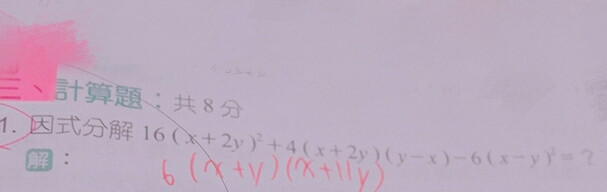 三、計算題：共8分
1. 因式分解 16(x+2y)²+4(x+2y)(y-x)-6(x-y)²=?
解：6(x+y)(x+11y)